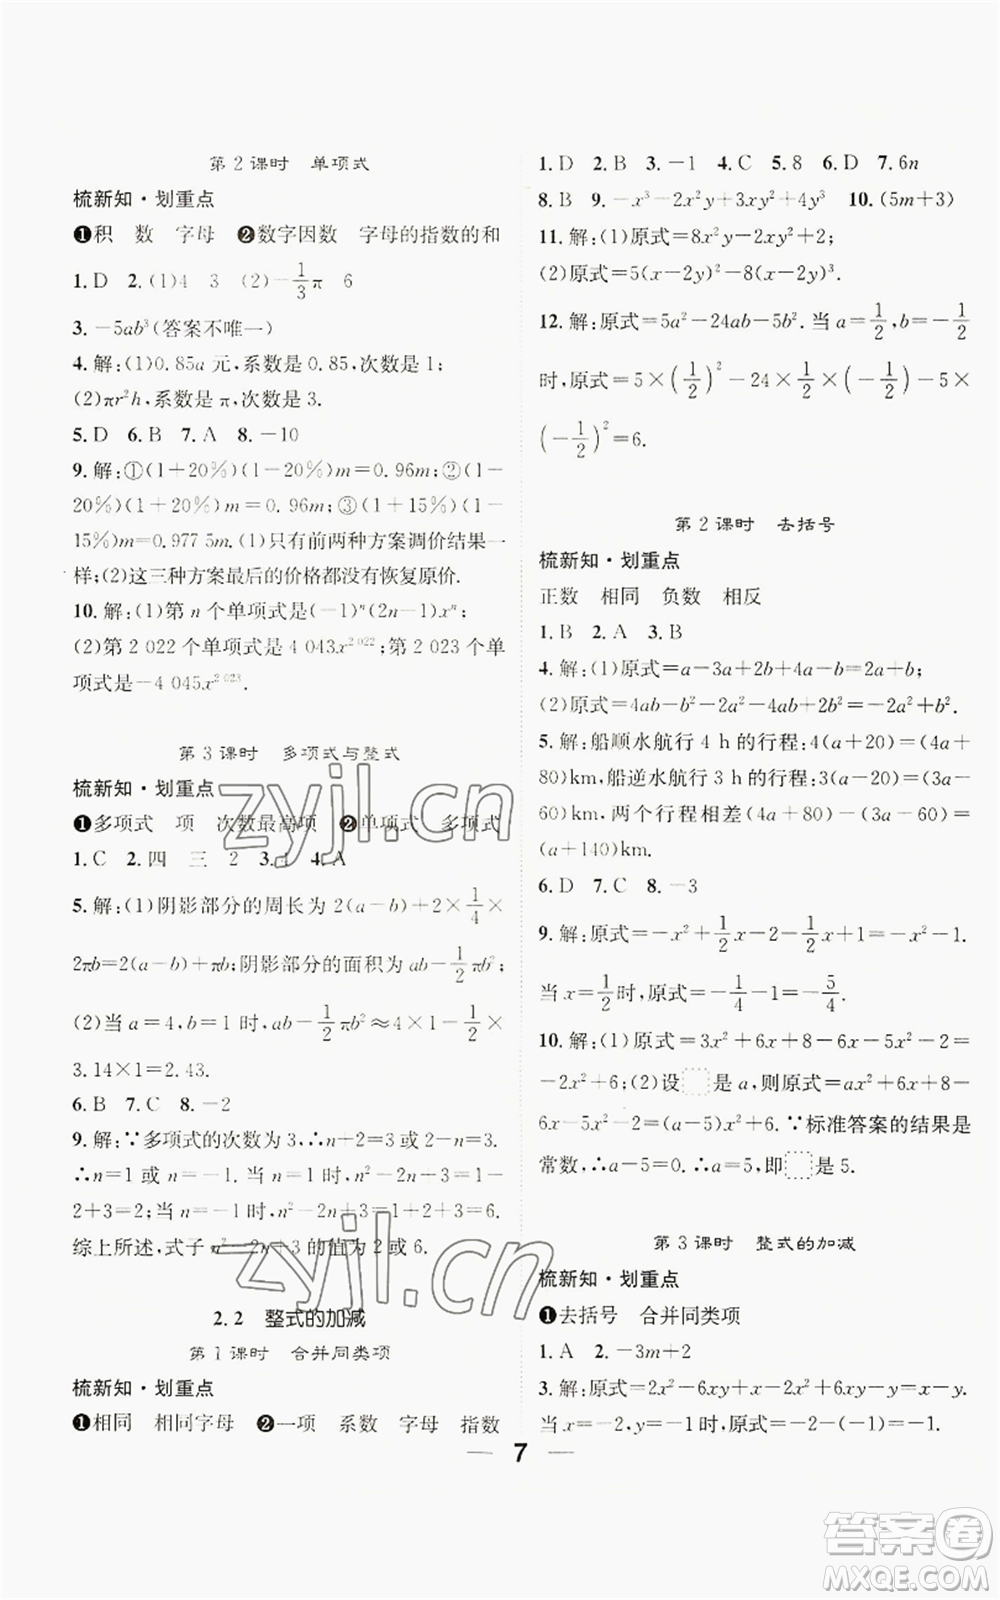 第2课时 单项式
梳新知·划重点
❶积 数 字母 ❷数字因数 字母的指数的和
1.D 2.(1)4 3 (2)-1/3π 6
3.-5ab³(答案不唯一)
4.解:(1)0.85a 元,系数是 0.85,次数是 1;
(2)πr²h,系数是 π,次数是 3.
5.D 6.B 7.A 8.-10
9.解:①(1+20%)(1-20%)m=0.96m;②(1-
20%)(1+20%)m=0.96m;③(1+15%)(1-
15%)m=0.977 5m.(1)只有前两种方案调价结果一
样;(2)这三种方案最后的价格都没有恢复原价.
10.解:(1)第 n 个单项式是(-1)ⁿ(2n-1)xⁿ;
(2)第 2 022 个单项式是 4 043x^{2 022},第 2 023 个单
项式是-4 045x^{2 023}.
第3课时 多项式与整式
梳新知·划重点
❶多项式 项 次数最高项 ❷单项式 多项式
1.C 2.四 三 2 3. 4.A
5.解:(1)阴影部分的周长为 2(a-b)+2×1/4×
2πb=2(a-b)+πb;阴影部分的面积为 ab-1/2πb²;
(2)当 a=4,b=1 时,ab-1/2πb²≈4×1-1/2×
3.14×1=2.43.
6.B 7.C 8.-2
9.解:∵多项式的次数为 3,∴n+2=3 或 2-n=3.
∴n=1 或 n=-1.当 n=1 时,n²-2n+3=1-
2+3=2;当 n=-1 时,n²-2n+3=1+2+3=6.
综上所述,式子 n²-2n+3 的值为 2 或 6.
2.2 整式的加减
第1课时 合并同类项
梳新知·划重点
❶相同 相同字母 ❷一项 系数 字母 指数
1.D 2.B 3.-1 4.C 5.8 6.D 7.6n
8.B 9.-x³-2x²y+3xy²+4y³ 10.(5m+3)
11.解:(1)原式=8x²y-2xy²+2;
(2)原式=5(x-2y)²-8(x-2y)³.
12.解:原式=5a²-24ab-5b².当 a=1/2,b=-1/2
时,原式=5×(1/2)²-24×1/2×(-1/2)-5×
(-1/2)²=6.
第2课时 去括号
梳新知·划重点
正数 相同 负数 相反
1.B 2.A 3.B
4.解:(1)原式=a-3a+2b+4a-b=2a+b;
(2)原式=4ab-b²-2a²-4ab+2b²=-2a²+b².
5.解:船顺水航行 4 h 的行程:4(a+20)=(4a+
80)km,船逆水航行 3 h 的行程:3(a-20)=(3a-
60)km,两个行程相差(4a+80)-(3a-60)=
(a+140)km.
6.D 7.C 8.-3
9.解:原式=-x²+1/2x-2-1/2x+1=-x²-1.
当 x=1/2时,原式=-1/4-1=-5/4.
10.解:(1)原式=3x²+6x+8-6x-5x²-2=
-2x²+6;(2)设 是 a,则原式=ax²+6x+8-
6x-5x²-2=(a-5)x²+6.∵标准答案的结果是
常数,∴a-5=0.∴a=5,即 是 5.
第3课时 整式的加减
梳新知·划重点
❶去括号 合并同类项
1.A 2.-3m+2
3.解:原式=2x-6xy-x+6xy-y=x-y.
当 x=-2,y=-1时,原式=-2-(-1)=-1.
7
zyjl.cn
zyjl.cn
答案圈
MXQE.COM